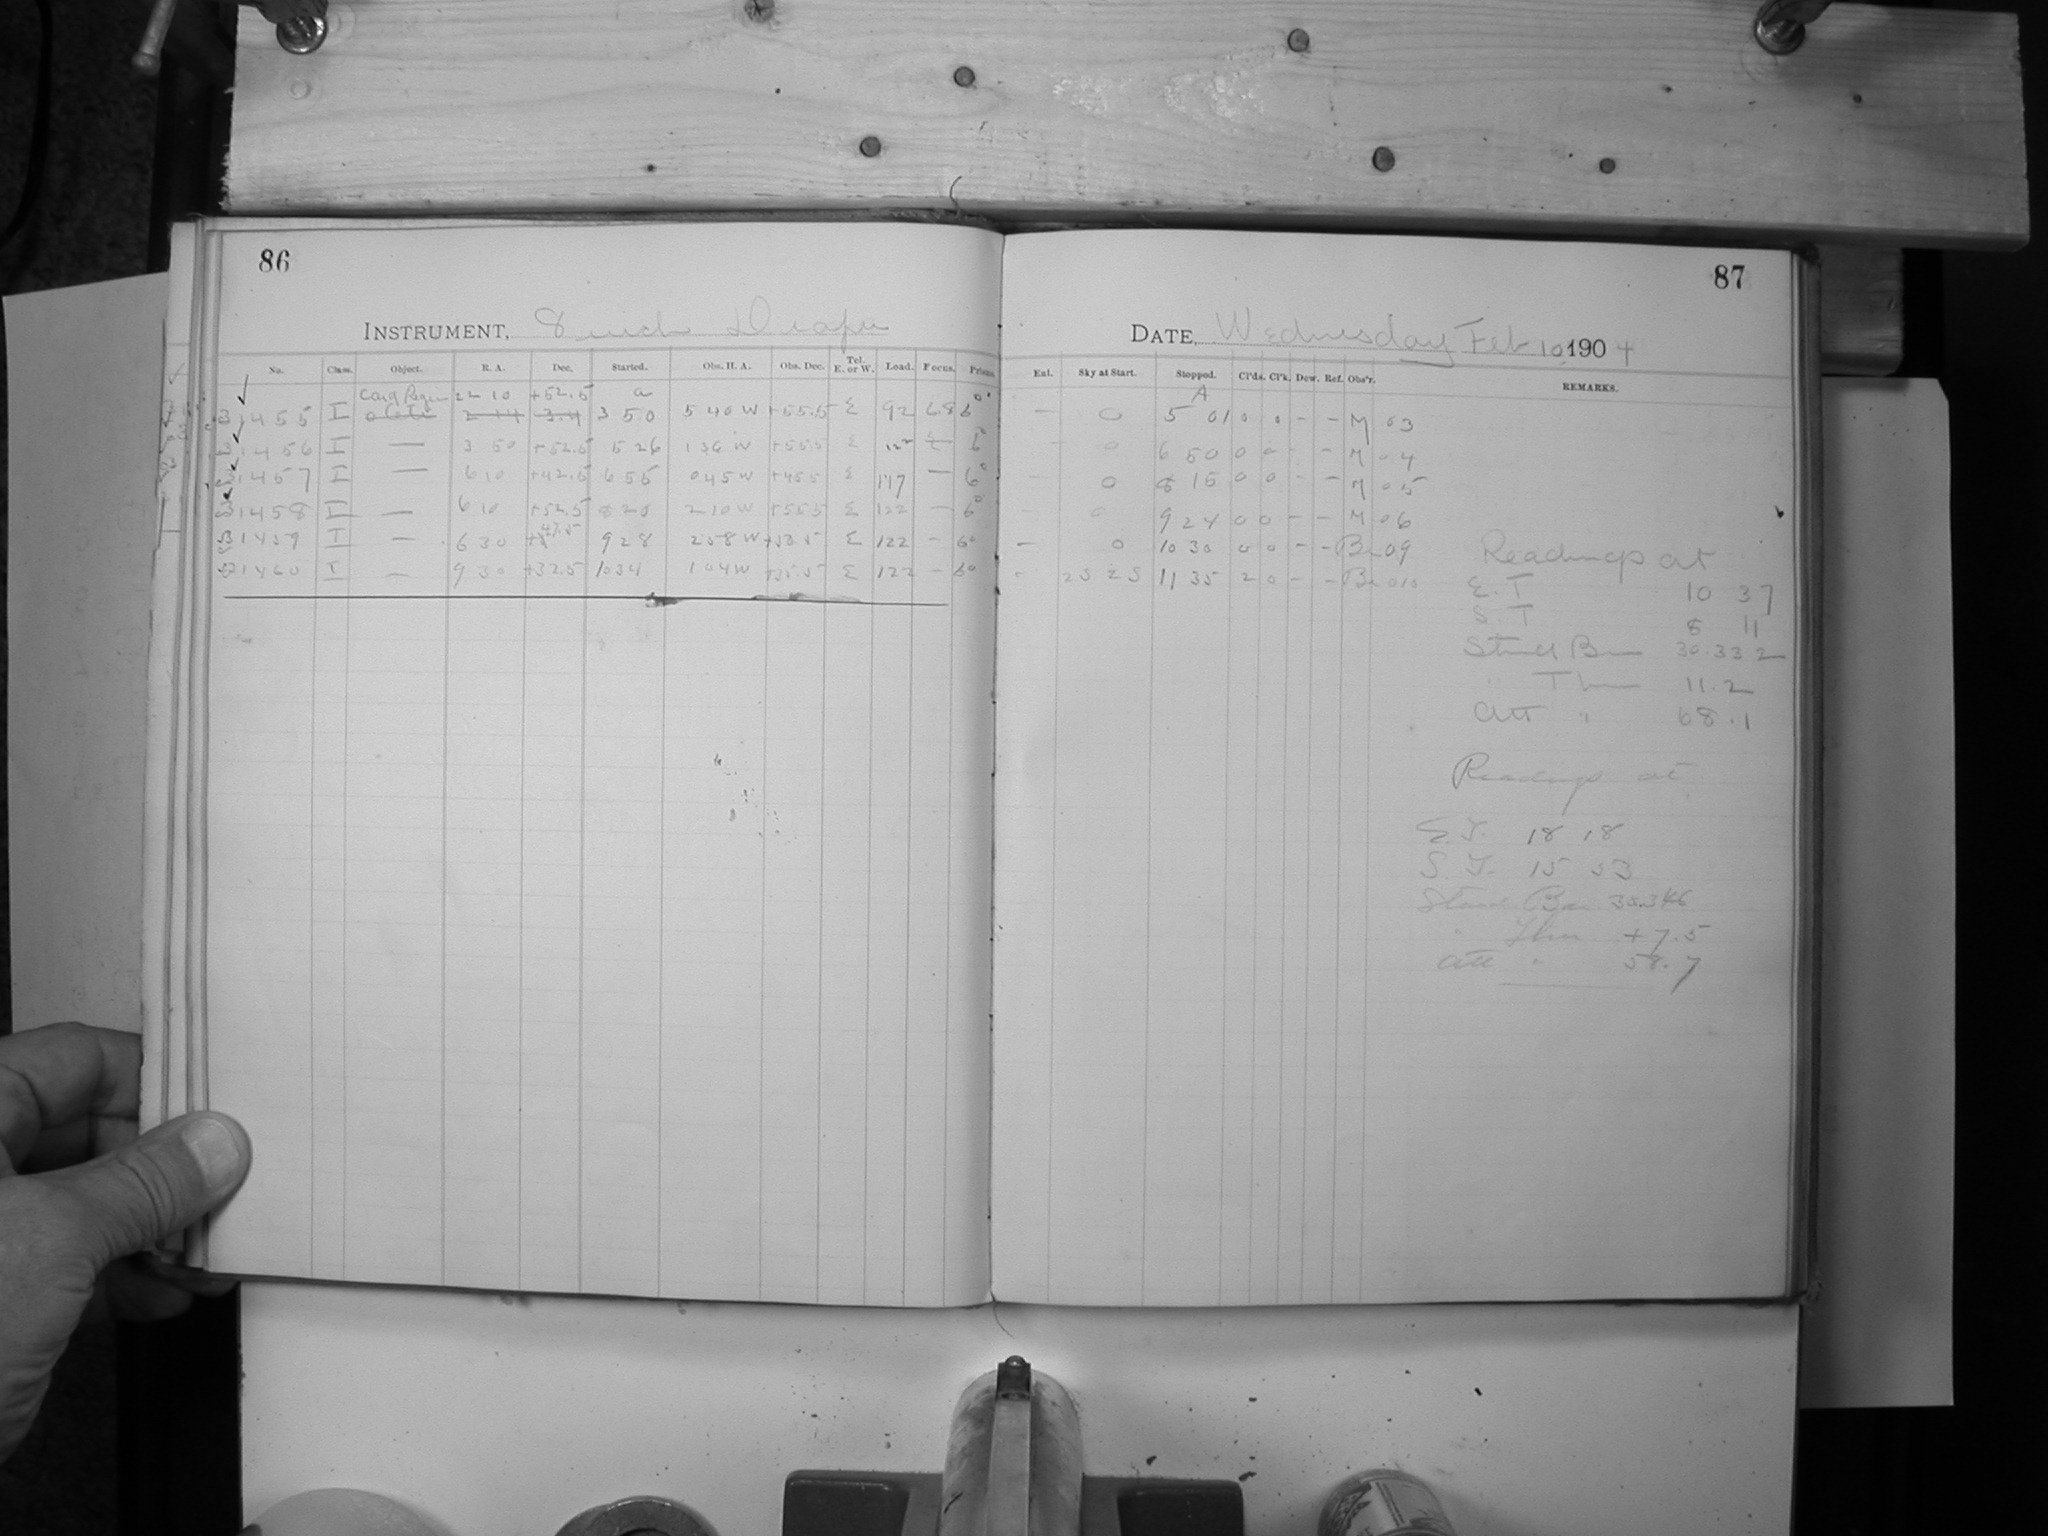 86
INSTRUMENT, 8 inch Draper
No. Class. Object. R. A. Dec. Started. Obs. H. A. Obs. Dec. Tel. E. or W. Load. Focus. Prism.
22 10 +52.5 a
B 1455 I o Ceti 2 14 -3.4 3 50 5 40 W +55.5 E 92 6.8 6°
B 1456 I — 3 50 +52.5 5 26 1 36 W +55.5 E 122 6°
B 1457 I — 6 10 +42.5 6 55 0 45 W +45.5 E 117 — 6°
B 1458 I — 6 10 +52.5 8 20 2 10 W +55.5 E 122 — 6°
B 1459 I — 6 30 +47.5 9 28 2 58 W E 122 — 6°
B 1460 I — 9 30 +32.5 10 34 1 04 W +35.5 E 122 — 6°
87
DATE, Wednesday Feb 10, 1904
Ext. Sky at Start. Stopped. Cl'ds. Cl'k. Dew. Ref. Obs'r. REMARKS.
A
— 0 5 01 0 0 - - M 03
0 6 50 0 0 - - M 04
— 0 8 15 0 0 - - M 05
0 9 24 0 0 - - M 06
— 0 10 30 0 0 - - Br 09
- 2S 2S 11 35 2 0 - - Br 010
Readings at
E. T 10 37
S. T 8 11
Stand Bar 30.332
" Ther 11.2
Att " 68.1
Readings at
E. T. 18 18
S. T. 15 53
Stand. Bar
" Ther +7.5
Att " 58.7